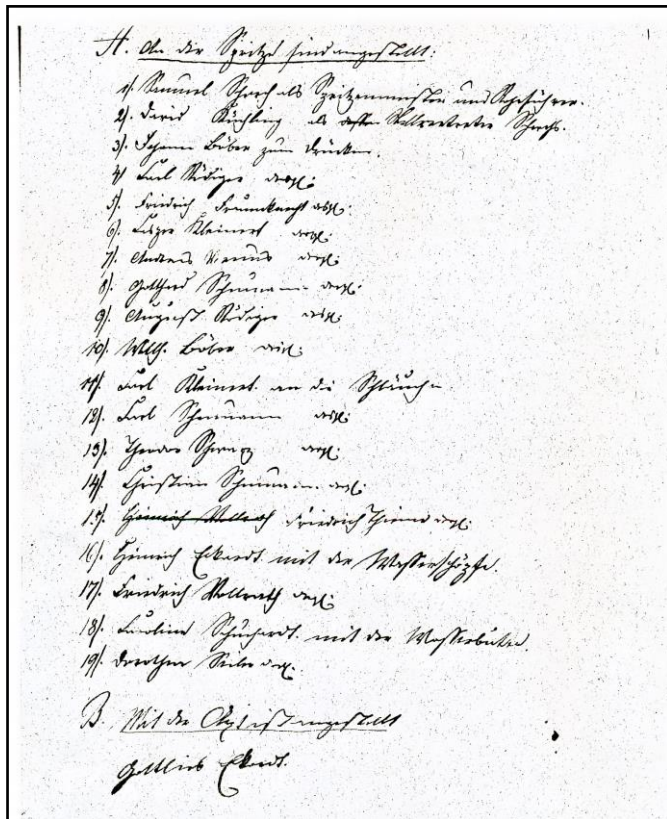 A. An der Spritze sind angestellt:
1). Samuel Schoch als Spritzenmeister und Rohrführer.
2). David Küchling als dessen Stellvertreter Schochs.
3). Johann Böber zum Drücken.
4) Karl Rüdiger desgl:
5). Friedrich Frumknecht desgl:
6). Kleinert desgl:
7). Andreas desgl:
8). Gotthard Schumann desgl:
9). August Rüdiger desgl:
10). Wilh. Böber desgl:
11). Karl Kleinert an die Schläuche
12). Karl Schumann desgl:
13). Theodor desgl:
14). Christian Schumann desgl:
15). Heinrich Vollrath Friedrich Thieme desgl:
16). Heinrich Eckardt mit der Wasserschöpfe.
17). Friedrich Vollrath desgl:
18). Karoline Schuchardt mit der Wasserbutte.
19). Dorothea desgl.
B. Mit der Axt ist angestellt
Gottlieb Eckardt.